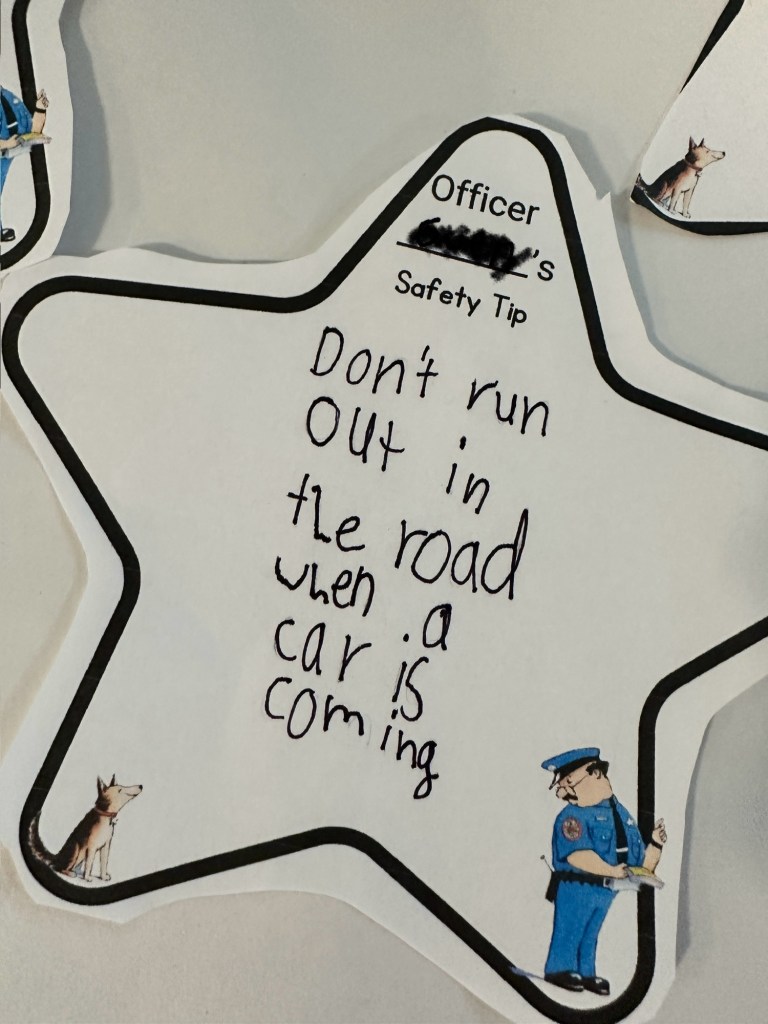 Officer
's
Safety Tip
Don't run
out in
the road
when a
car is
coming